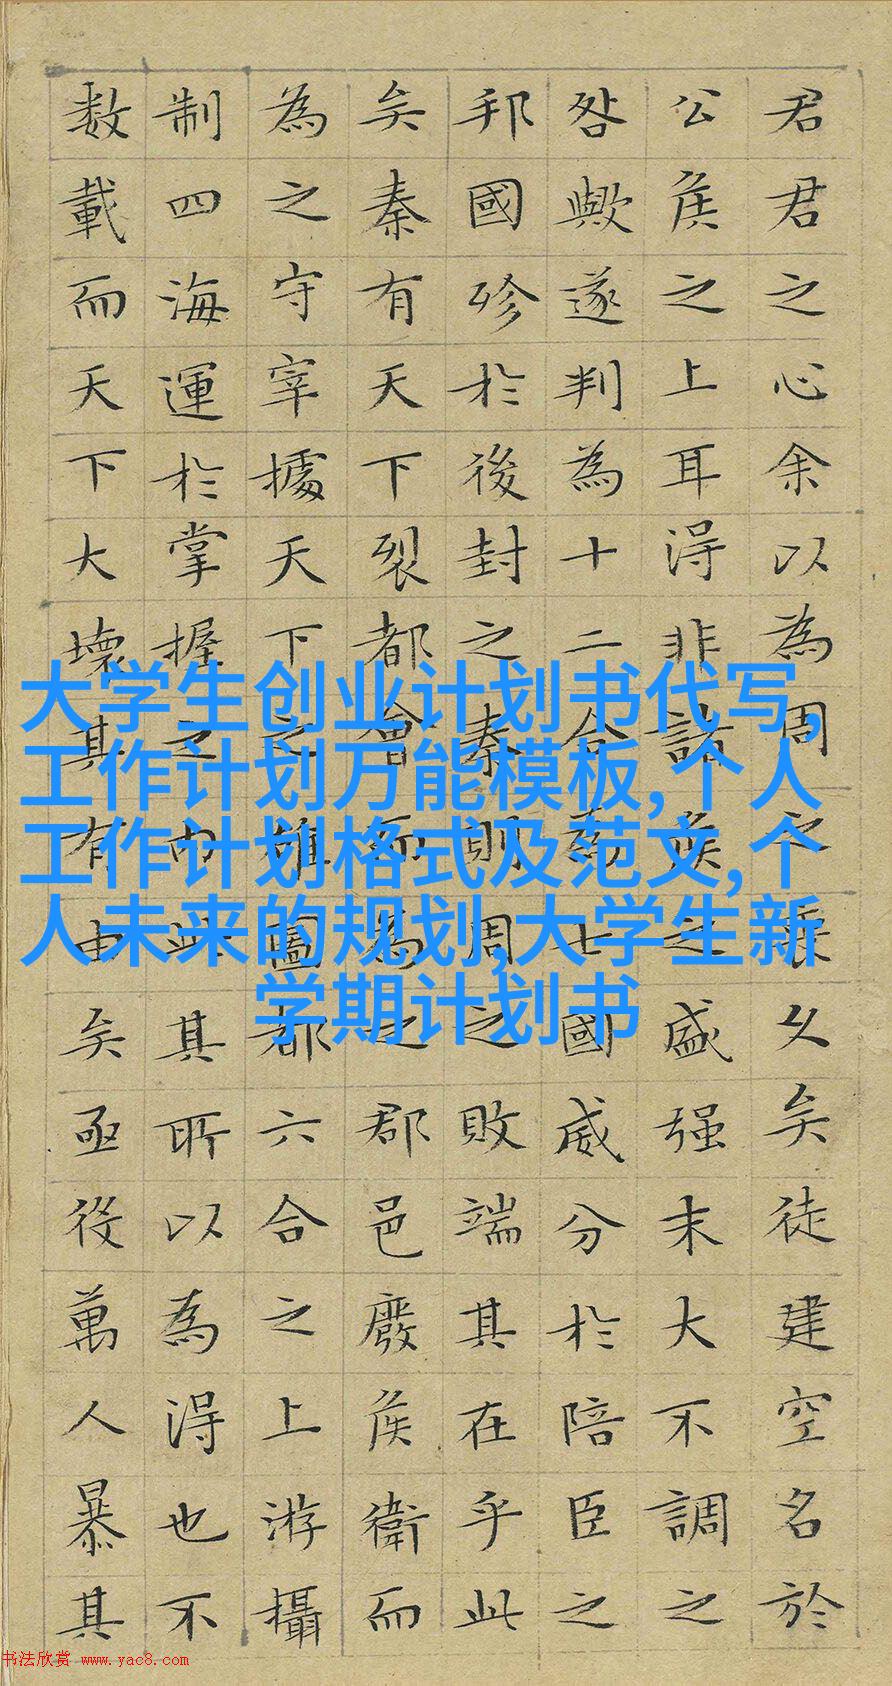 君君之心余以為周之喪久矣徒建空名於
公侯之上耳得非諸侯之盛强末大不調之
咎歟遂判為十二合為七國威分於陪臣之
邦國殄於後封之秦則周之敗端其在乎此
矣秦有天下裂都會而為之郡邑廢侯衛而
為之守宰據天下之雄圖都六合之上游攝
制四海運於掌握之內此其所以為得也不
数載而天下大壞其有由矣亟役萬人暴其
大学生创业计划书代写,
工作计划万能模板,个人
工作计划格式及范文,个
人未来的规划,大学生新
学期计划书
书法欣赏 www.yac8.com